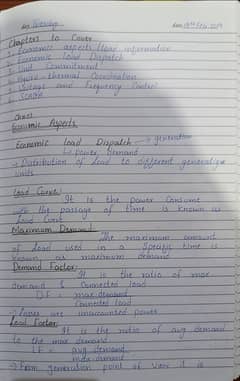 Day Tuesday Date
Chapters to Cover
1. Economic aspects / load information
2. Economic Load Dispatch
3. Unit Commitment
4. Hydro - thermal Coordination
5. Voltage and Frequency Control
6. SCADA
Economic Aspects
Economic load Dispatch → generation
→ power Demand
→ Distribution of load to different
units
Load Curve:
It is the power consume
with the passage of time is known as
load curve
Maximum Demand:
The maximum amount
of load used in a specific time is
known as maximum demand
Demand Factor:
It is the ratio of max
demand & Connected load
DF = max demand
Connected load
→ losses are unaccounted power
Load Factor:
It is the ratio of avg demand
to the max demand
LF = avg demand
max demand
→ From generation point of view it is